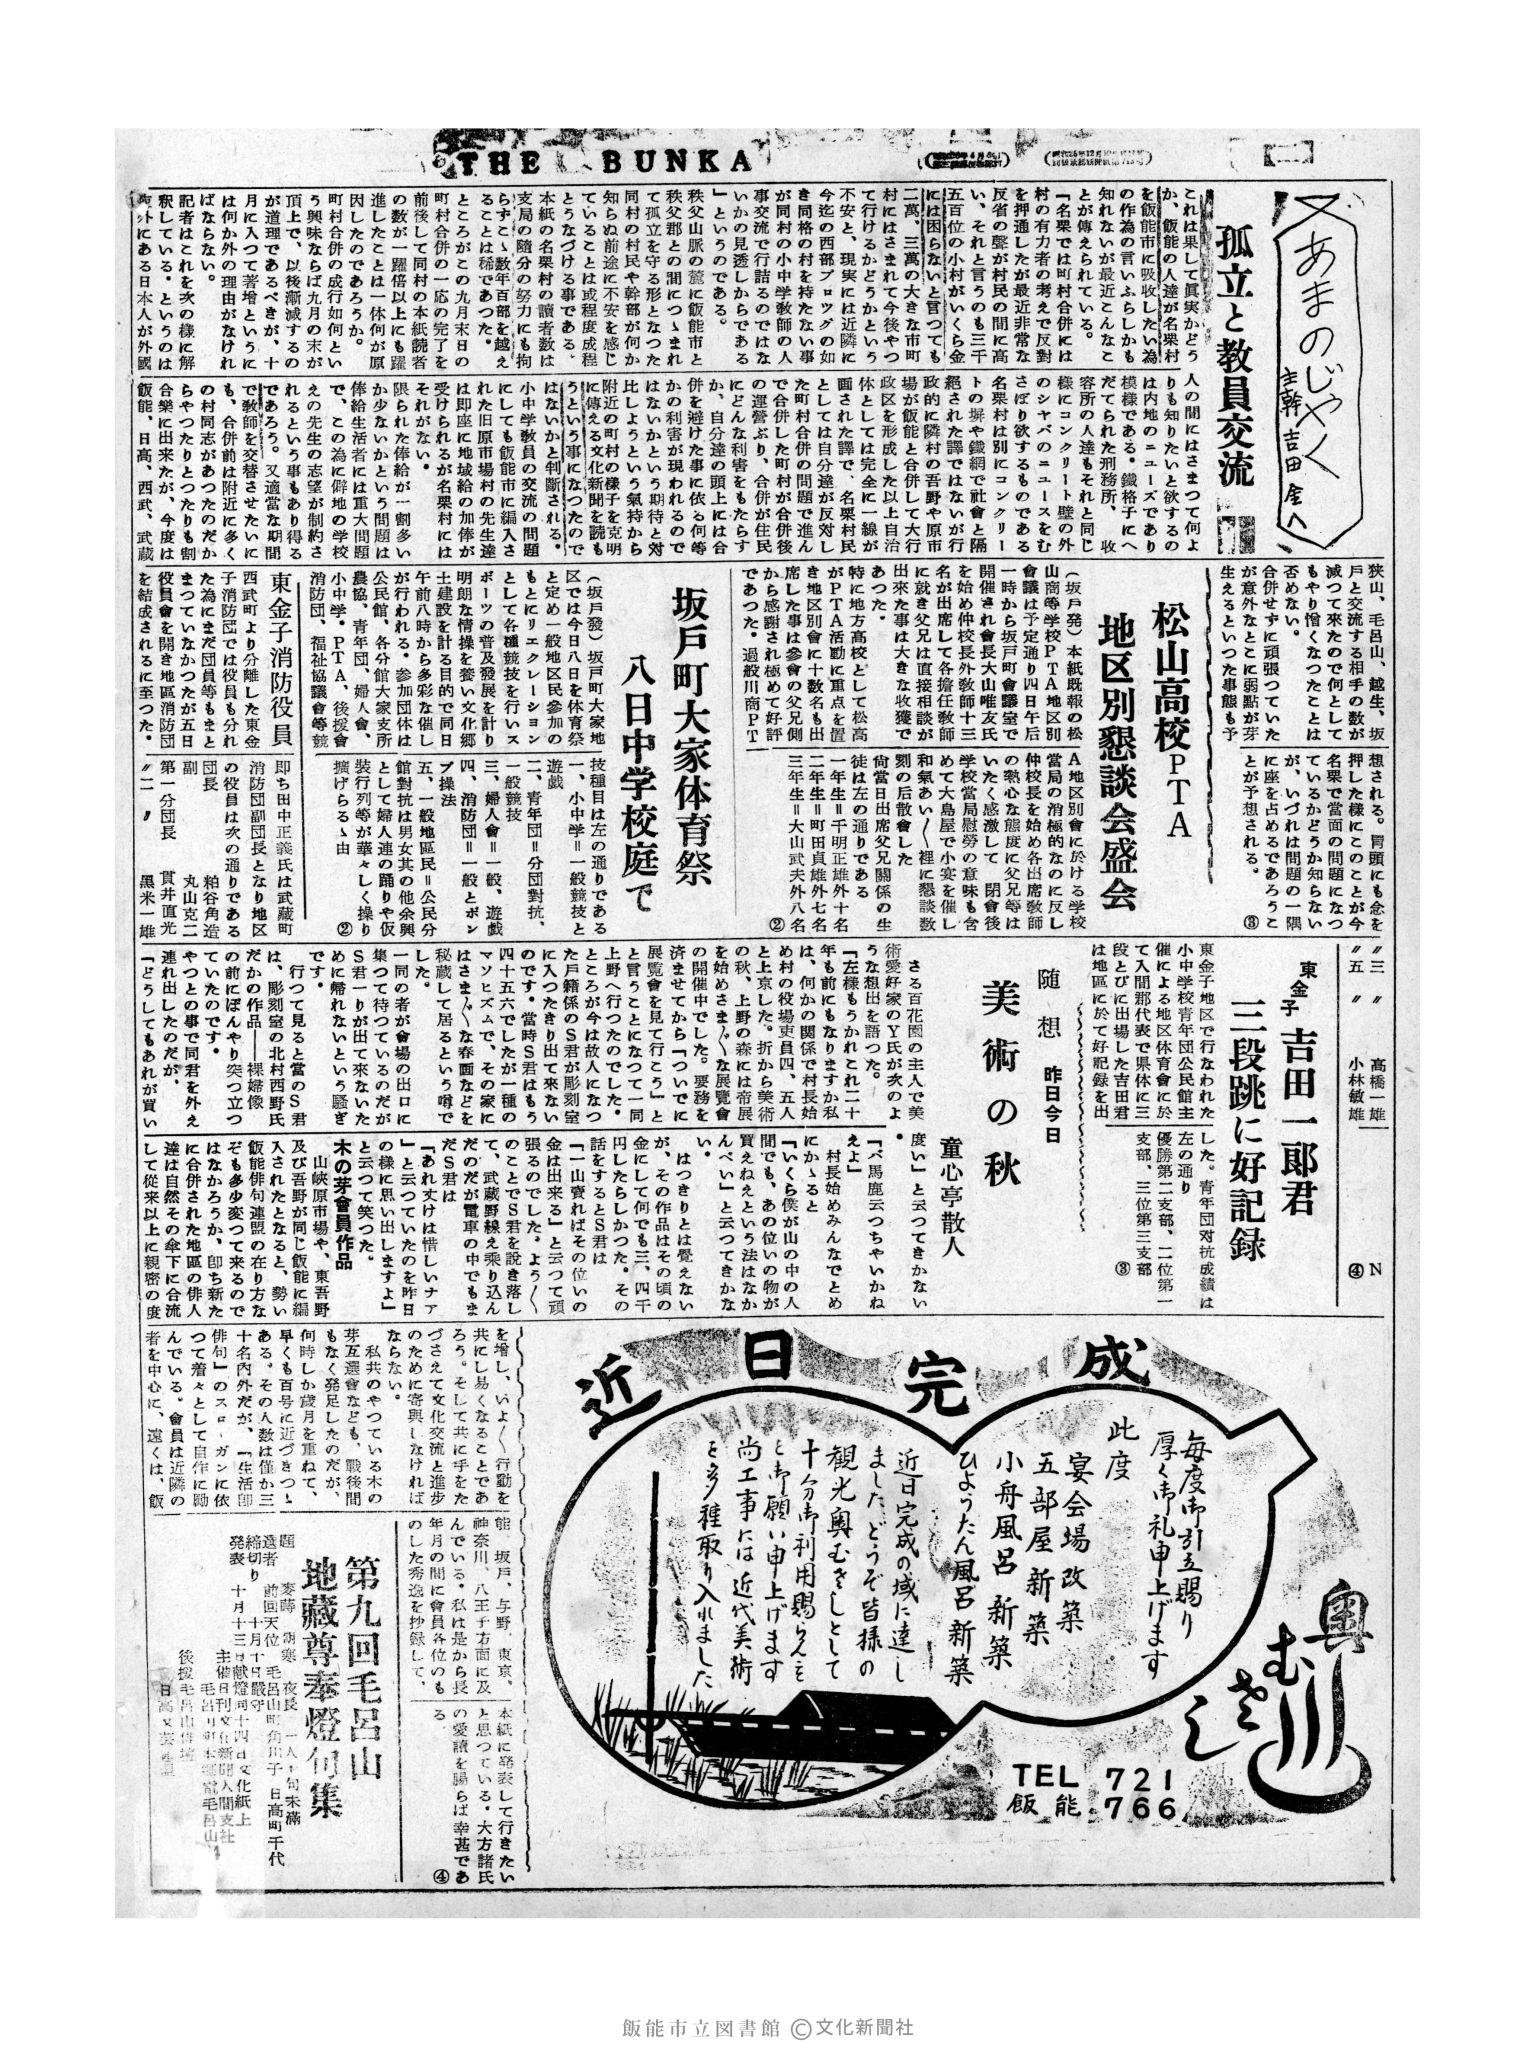 THE BUNKA
(二)
又あまのじやく
主幹 吉田金八
孤立と教員交流
これは果して眞実かどう
か、飯能の人達が名栗村
を飯能市に吸收したい為
の作為の言いふらしかも
知れないが最近こんなこ
とが傳えられている。
「名栗では町村合併には
村の有力者の考えで反對
を押通したが最近非常な
反省の聲が村民の間に高
い、それと言うのも三千
五百位の小村がいくら金
には困らないと言つても
二萬、三萬の大きな市町
村にはさまれて今後やつ
て行けるかどうかという
不安と、現実には近隣に
今迄の西部ブロツグの如
き同格の村を持たない事
が同村の小中学教師の人
事交流で行詰るのではな
いかの見透しからである
」というのである。
秩父山脈の麓に飯能市と
秩父郡との間につゝまれ
て孤立を守る形となつた
同村の村民や幹部が何か
知らぬ前途に不安を感じ
ていることは或程度成程
とうなづける事である。
本紙の名栗村の讀者数は
支局の隨分の努力にも拘
らずこゝ数年百部を越え
ることは稀であつた。
ところがこの九月末日の
町村合併の一応の完了を
前後して同村の本紙読者
の数が一躍倍以上にも躍
進したことは一体何が原
因したのであろうか。
町村合併の成行如何とい
う興味ならば九月の末が
頂上で、以後漸減するの
が道理であるべきが、十
月に入つて著増というに
は何か外の理由がなけれ
ばならない。
記者はこれを次の樣に解
釈している。というのは
海外にある日本人が外國
人の間にはさまつて何よ
りも知りたいと欲するの
は内地のニユーズであり
模樣である。鐵格子にへ
だてられた刑務所、收
容所の人達もそれと同じ
樣にコンクリート壁の外
のシヤバのニユースをむ
さぼり欲するものである
名栗村は別にコンクリー
トの塀や鐵網で社會と隔
絕された譯ではないが行
政的に隣村の吾野や原市
場が飯能と合併して大行
政区を形成した以上自治
体としては完全に一線が
画された譯で、名栗村民
としては自分達が反対し
た町村合併の問題で進ん
で合併した町村が合併後
の運営ぶり、合併が住民
にどんな利害をもたらす
か、自分達の頭上には合
併を避けた事に依る何等
かの利害が現われるので
はないかという期待と対
比しようという氣持から
附近の町村の様子を克明
に傳える文化新聞を読も
うという事になつたので
はないかと判断される。
小中学教員の交流の問題
にしても飯能市に編入さ
れた旧原市場村の先生達
は即座に地域給の加俸が
受けられるが名栗村には
それがない。
限られた俸給が一割多い
か少ないかという問題は
俸給生活者には重大問題
で、この為に僻地の学校
えの先生の志望が制約さ
れるという事もあり得る
であろう。又適當な期間
で教師を交替させたいに
も、合併前は附近に多く
の村同志があつたのだか
らやつたりとつたりも割
合樂に出来たが、今度は
飯能、日高、西武、武蔵
狹山、毛呂山、越生、坂
戸と交流する相手の数が
減つて來たので何として
もやり憎くなつたことは
否めない。
合併せずに頑張つていた
が意外なとこに弱點が芽
生えるといつた事態も予
想される。冐頭にも念を
押した様にこのことが今
名栗で當面の問題になつ
ているかどうか知らない
が、いづれは問題の一隅
に座を占めるであろうこ
とが予想される。 ③
松山高校PTA
地区別懇談会盛会
(坂戸発)本紙既報の松
山商等学校PTA地区別
會議は予定通り四日午后
一時から坂戸町會議室で
開催され會長大山唯友氏
を始め仲校長外敎師十三
名が出席して各擔任敎師
に就き父兄は直接相談が
出來た事は大きな收獲で
あつた。
特に地方高校として松高
がPTA活動に重点を置
き地区別會に十数名も出
席した事は參會の父兄側
から感謝され極めて好評
であつた。過般川南PT
A地区別會に於ける学校
當局の消極的なのに反し
仲校長を始め各出席敎師
の熱心な態度に父兄等は
いたく感激して 閉會後
学校當局慰勞の意味も含
めて大島屋で小宴を催し
和氣あい〱裡に懇談数
刻の后散會した
尙當日出席父兄關係の生
徒は左の通りである
一年生=千明正雄外十名
二年生=町田貞雄外七名
三年生=大山武夫外八名
②
坂戸町大家体育祭
八日中学校庭で
(坂戸發)坂戸町大家地
区では今日八日を体育祭
と定め一般地区民参加の
もとにリエクレーション
として各種競技を行いス
ポーツの普及發展を計り
明朗な情操を養い文化郷
土建設を計る目的で同日
午前八時から多彩な催し
が行われる。参加団体は
公民館、各分館大家支所
農協、青年団、婦人會、
小中学・PTA、後援會
消防団、福祉協議會等競
技種目は左の通りである
一、小中学=一般競技と
遊戯
二、青年団=分団對抗、
一般競技
三、婦人會=一般、遊戯
四、消防団=一般とポン
プ操法
五、一般地區民=公民分
館對抗は男女其の他余興
として婦人連の踊りや仮
裝行列等が華々しく操り
擴げらるゝ由 ②
東金子消防役員
西武町より分離した東金
子消防団では役員も分れ
た為にまだ団員等もまと
まつていなかつたが五日
役員會を開き地區消防団
を結成されるに至つた。
即ち田中正義氏は武蔵町
消防団副団長となり地区
の役員は次の通りである
団長 粕谷角造
副 丸山克二
第一分団長 貫井直光
〃二 〃 黒米一雄
〃三 〃 高橋一雄
〃五 〃 小林敏雄
N ④
東金子 吉田一郎君
三段跳に好記録
東金子地区で行なわれた
小中学校青年団公民館主
催による地区体育會に於
て入間郡代表で県体に三
段とびに出場した吉田君
は地區に於て好記録を出
した。青年団対抗成績は
左の通り
優勝第二支部、二位第一
支部、三位第三支部
③
随想 昨日今日
美術の秋
童心亭散人
さる百花園の主人で美
術愛好家のY氏が次のよ
うな想出を語つた。
「左樣もうかれこれ二十
年も前にもなりますか私
は、何かの関係で村長始
め村の役場吏員四、五人
と上京した。折から美術
の秋、上野の森には帝展
を始めさま〲な展覽會
の開催中でした。要務を
済ませてから「ついでに
展覧會を見て行こう」と
と言うことになつて一同
上野へ行つたのでした。
ところが今は故人になつ
た戸籍係のS君が彫刻室
に入つたきり出て來ない
のです。當時S君はもう
四十五六でしたが一種の
マソヒズムで、その家に
はさま〲な春画などを
秘蔵して居るという噂で
した。
一同の者が會場の出口に
集つて待つているのだが
S君一りが出て來ないた
めに帰れないという騒ぎ
です。
行つて見ると當のS君
は、彫刻室の北村西野氏
だかの作品――裸婦像
の前にぼんやり突つ立つ
ていたのです。
やつとの事で同君を外え
連れ出したのだが、
「どうしてもあれが買い
度い」と云つてきかない
「バ馬鹿云つちやいかね
えよ」
村長始めみんなでとめ
にかゝると
「いくら僕が山の中の人
間でも、あの位いの物が
買えねえという法はなか
んべい」と云つてきかな
い。
はつきりとは覺えない
が、その作品はその頃の
金にして何でも三、四千
円したらしかつた。その
話をするとS君は
「一山賣ればその位いの
金は出来る」と云つて頑
張るのでした。よう〱
のことでS君を説き落し
て、武蔵野線え乗り込ん
だのだが電車の中でもま
だS君は
「あれ丈けは惜しいナア
」と云つていたのを昨日
の様に思い出しますよ」
と云つて笑つた。
木の芽會員作品
山峡原市場や、東吾野
及び吾野が同じ飯能に編
入されたとなると、勢い
飯能俳句連盟の在り方な
ぞも多少変つて来るので
はなかろうか、卽ち新た
に合併された地區の俳人
達は自然その傘下に合流
して從来以上に親密の度
を增し、いよ〱行動を
共にし易くなることであ
ろう。そして共に手をた
づさえて文化交流と進步
のために寄與しなければ
ならない。
私共のやつている木の
芽互選會なども、戰後間
もなく発足したのだが、
何時しか歳月を重ねて、
早くも百号に近づきつと
ある。その人数は僅か三
十名内外だが、「生活卽
俳句」のスローガンに依
つて着々として自作に勵
んでいる。會員は近隣の
者を中心に、遠くは、飯
能、坂戸、与野、東京、
神奈川、八王子方面に及
んでいる。私は是から長
年月の間に會員各位のも
のした秀逸を抄録して、
本紙に発表して行きたい
と思つている。大方諸氏
の愛讀を賜らば幸甚であ
る。 ④
第九回毛呂山
地藏尊奉燈句集
題 麥蒔 朝寒 夜長 一人十句末滿
選者 前回天位 毛呂山町角川子 日高町千代
締切り 十月十日嚴守
発表 十月十三日献燈同十四日文化紙上
主催日刊文化新聞入間支社
近日完成
毎度御引立賜り
厚く御礼申上げます
此度
宴会場改築
五部屋新築
小舟風呂新築
ひようたん風呂新築
近日完成の域に達し
ました どうぞ皆様の
観光奥むさしとして
十分御利用賜らんを
と御願い申上げます
尚工事には近代美術
を多種取り入れました
奥むさし
TEL 721
飯能 766
飯能市立図書館 ©文化新聞社